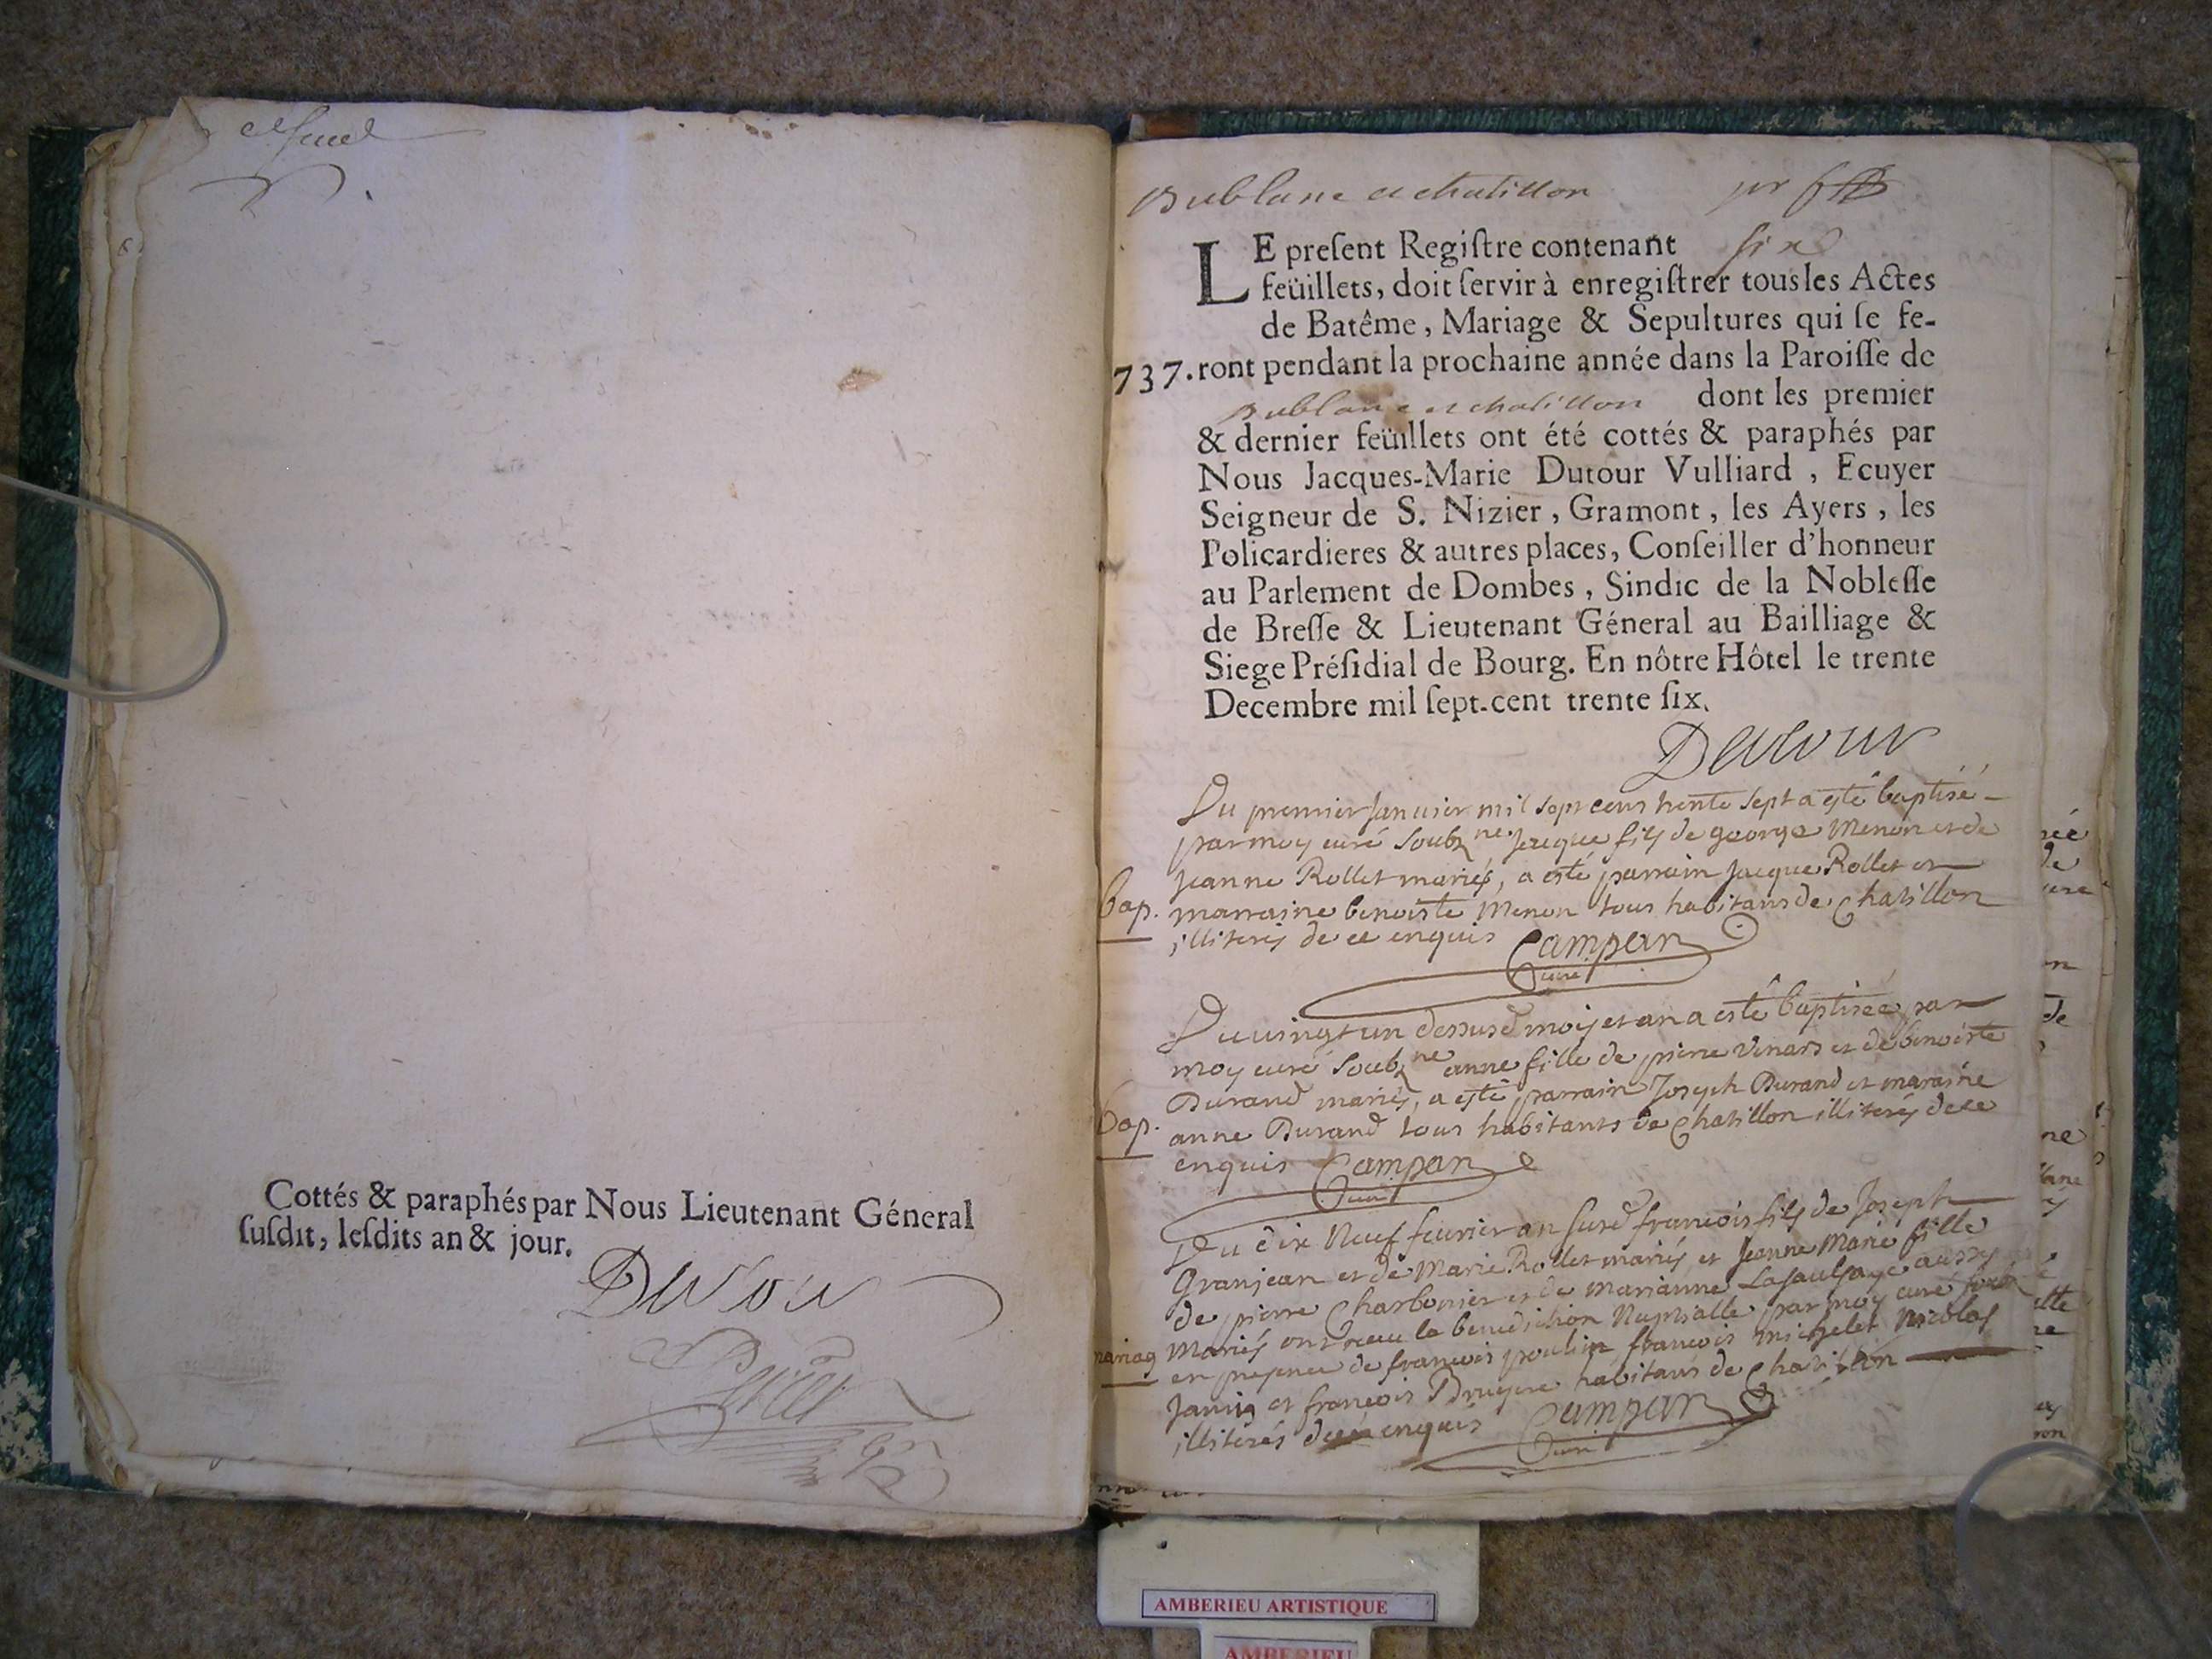 Cottés & paraphés par Nous Lieutenant Géneral
ſuſdit, leſdits an & jour.
Dutour
Bublane et chatillon
LE preſent Regiſtre contenant six
feüillets, doit ſervir à enregiſtrer tous les Actes
de Batême, Mariage & Sepultures qui ſe fe-
737. ront pendant la prochaine année dans la Paroiſſe de
Bublane et chatillon dont les premier
& dernier feüillets ont été cottés & paraphés par
Nous Jacques-Marie Dutour Vulliard, Ecuyer
Seigneur de S. Nizier, Gramont, les Ayers, les
Policardieres & autres places, Conſeiller d'honneur
au Parlement de Dombes, Sindic de la Nobleſſe
de Breſſe & Lieutenant Géneral au Bailliage &
Siege Préſidial de Bourg. En nôtre Hôtel le trente
Decembre mil ſept-cent trente ſix.
Dutour
Du premier Januier mil sept cens trente sept a esté baptisé
par moy curé soubz.ne Jacque fils de george Menon et de
Jeanne Rollet mariés, a esté parrain Jacque Rollet et
bap. marraine benoiste Menon tous habitans de Chatillon
illiterés de ce enquis Campan
Curé
Du vingt un dessusd moys et an a esté baptisée par
moy curé soubz.ne anne fille de pierre Vinard et de benoiste
Durand mariés, a esté parrain Joseph Durand et maraine
bap. anne Durand tous habitants de Chatillon illiterés de ce
enquis Campan
Curé
Du dix Neuf feurier an susd francois fils de Joseph
Granjean et de Marie Rollet mariés et Jeanne Marie fille
de pierre Charbonier et de Marianne Lasaulsaye aussy
mariag Mariés ont receu la benediction Nuptialle par moy curé soubz
en presence de francois poulin francois michelet Nicolas
Janin et francois Bruyere habitans de Chatillon
illiterés enquis Campan
Curé
AMBERIEU ARTISTIQUE
AMBERIEU